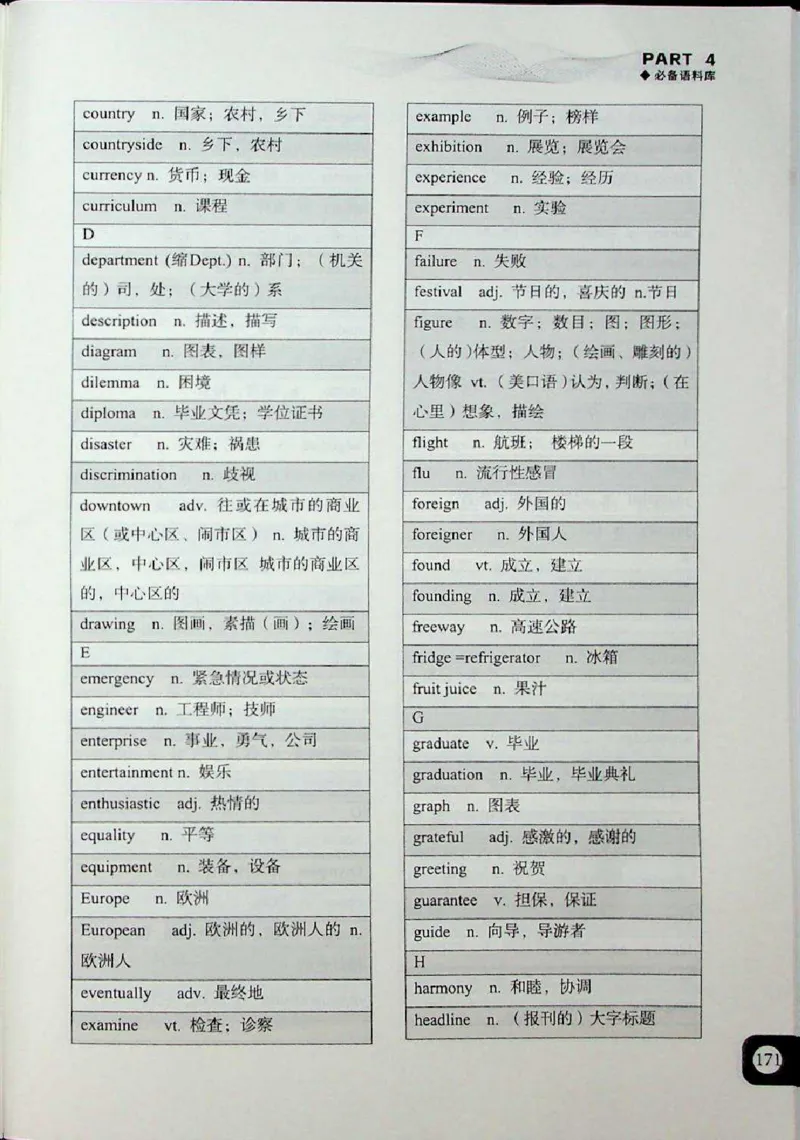 PART 4
◆必备语料库
country n. 国家；农村，乡下
countryside n. 乡下，农村
currency n. 货币；现金
curriculum n. 课程
D
department (缩Dept.) n. 部门；（机关
的）司，处；（大学的）系
description n. 描述，描写
diagram n. 图表，图样
dilemma n. 困境
diploma n. 毕业文凭；学位证书
disaster n. 灾难；祸患
discrimination n. 歧视
downtown adv. 往或在城市的商业
区（或中心区、闹市区） n. 城市的商
业区，中心区，闹市区 城市的商业区
的，中心区的
drawing n. 图画，素描（画）；绘画
E
emergency n. 紧急情况或状态
engineer n. 工程师；技师
enterprise n. 事业，勇气，公司
entertainment n. 娱乐
enthusiastic adj. 热情的
equality n. 平等
equipment n. 装备，设备
Europe n. 欧洲
European adj. 欧洲的，欧洲人的 n.
欧洲人
eventually adv. 最终地
examine vt. 检查；诊察
example n. 例子；榜样
exhibition n. 展览；展览会
experience n. 经验；经历
experiment n. 实验
F
failure n. 失败
festival adj. 节日的，喜庆的 n.节日
figure n. 数字；数目；图；图形；
（人的）体型；人物；（绘画、雕刻的）
人物像 vt.（美口语）认为，判断；（在
心里）想象，描绘
flight n. 航班； 楼梯的一段
flu n. 流行性感冒
foreign adj. 外国的
foreigner n. 外国人
found vt. 成立，建立
founding n. 成立，建立
freeway n. 高速公路
fridge =refrigerator n. 冰箱
fruit juice n. 果汁
G
graduate v. 毕业
graduation n. 毕业，毕业典礼
graph n. 图表
grateful adj. 感激的，感谢的
greeting n. 祝贺
guarantee v. 担保，保证
guide n. 向导，导游者
H
harmony n. 和睦，协调
headline n. （报刊的）大字标题
171